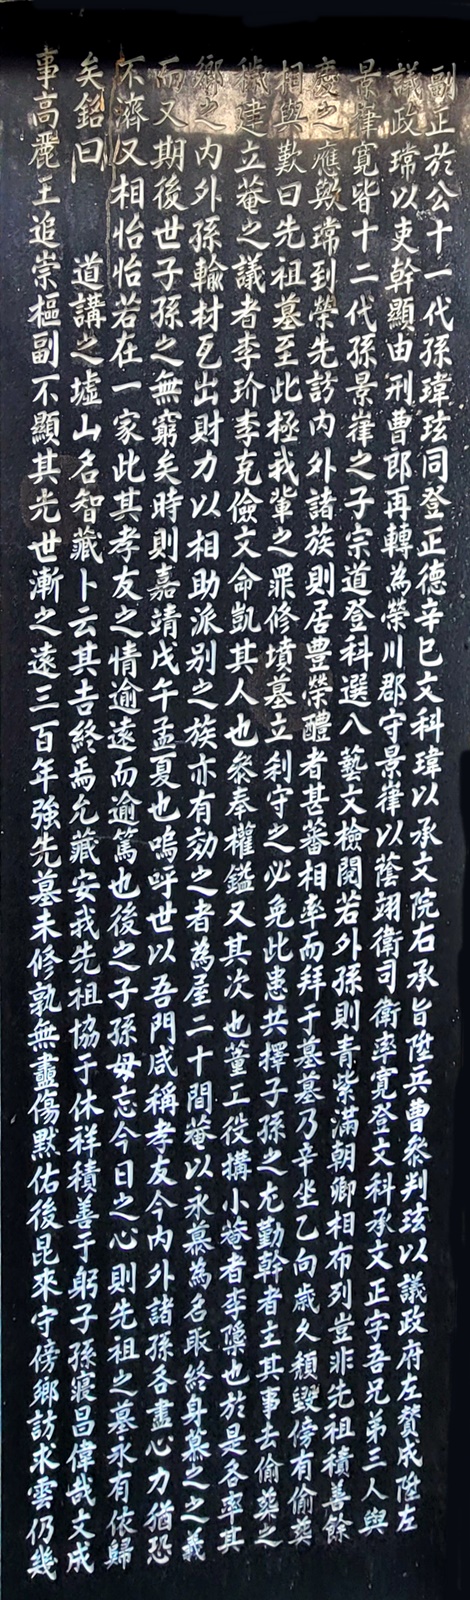 副正於公十一代孫瑋玹同登正德辛巳文科瑋以承文院右承旨陞兵曹叅判玹以議政府左贊成陞左
議政瑺以吏幹顯由刑曹郎再轉為榮川郡守景嵂以蔭翊衛司衛率寬登文科承文正字吾兄弟三人與
景嵂寬皆十二代孫景嵂之子宗道登科選入藝文檢閱若外孫則青紫滿朝卿相布列豈非先祖積善餘
慶之應歟瑺到榮先訪內外諸族則居豊榮醴者甚蕃相率而拜于墓墓乃辛坐乙向歲久頹毀傍有偷葬
相與歎曰先祖墓至此極我輩之罪修墳墓立利守之必免此患共擇子孫之尤勤幹者主其事去偷葬之
建立菴之議者李玠李克儉文命凱其人也叅奉權鎰又其次也董工役搆小菴者李蘟也於是各率其
鄉之內外孫輸材瓦出財力以相助派別之族亦有効之者為屋二十間菴以永慕為名取終身慕之之義
而又期後世子孫之無窮矣時則嘉靖戊午孟夏也嗚呼世以吾門咸稱孝友今內外諸孫各盡心力猶恐
不濟又相怡怡若在一家此其孝友之情逾遠而逾篤也後之子孫毋忘今日之心則先祖之墓永有依歸
矣銘曰　道講之墟山名智藏卜云其吉終焉允藏安我先祖協于休祥積善于躬子孫寔昌偉哉文成
事高麗王追崇樞副不顯其光世漸之遠三百年強先墓未修孰無盡傷默佑後昆來守傍鄉訪求雲仍幾